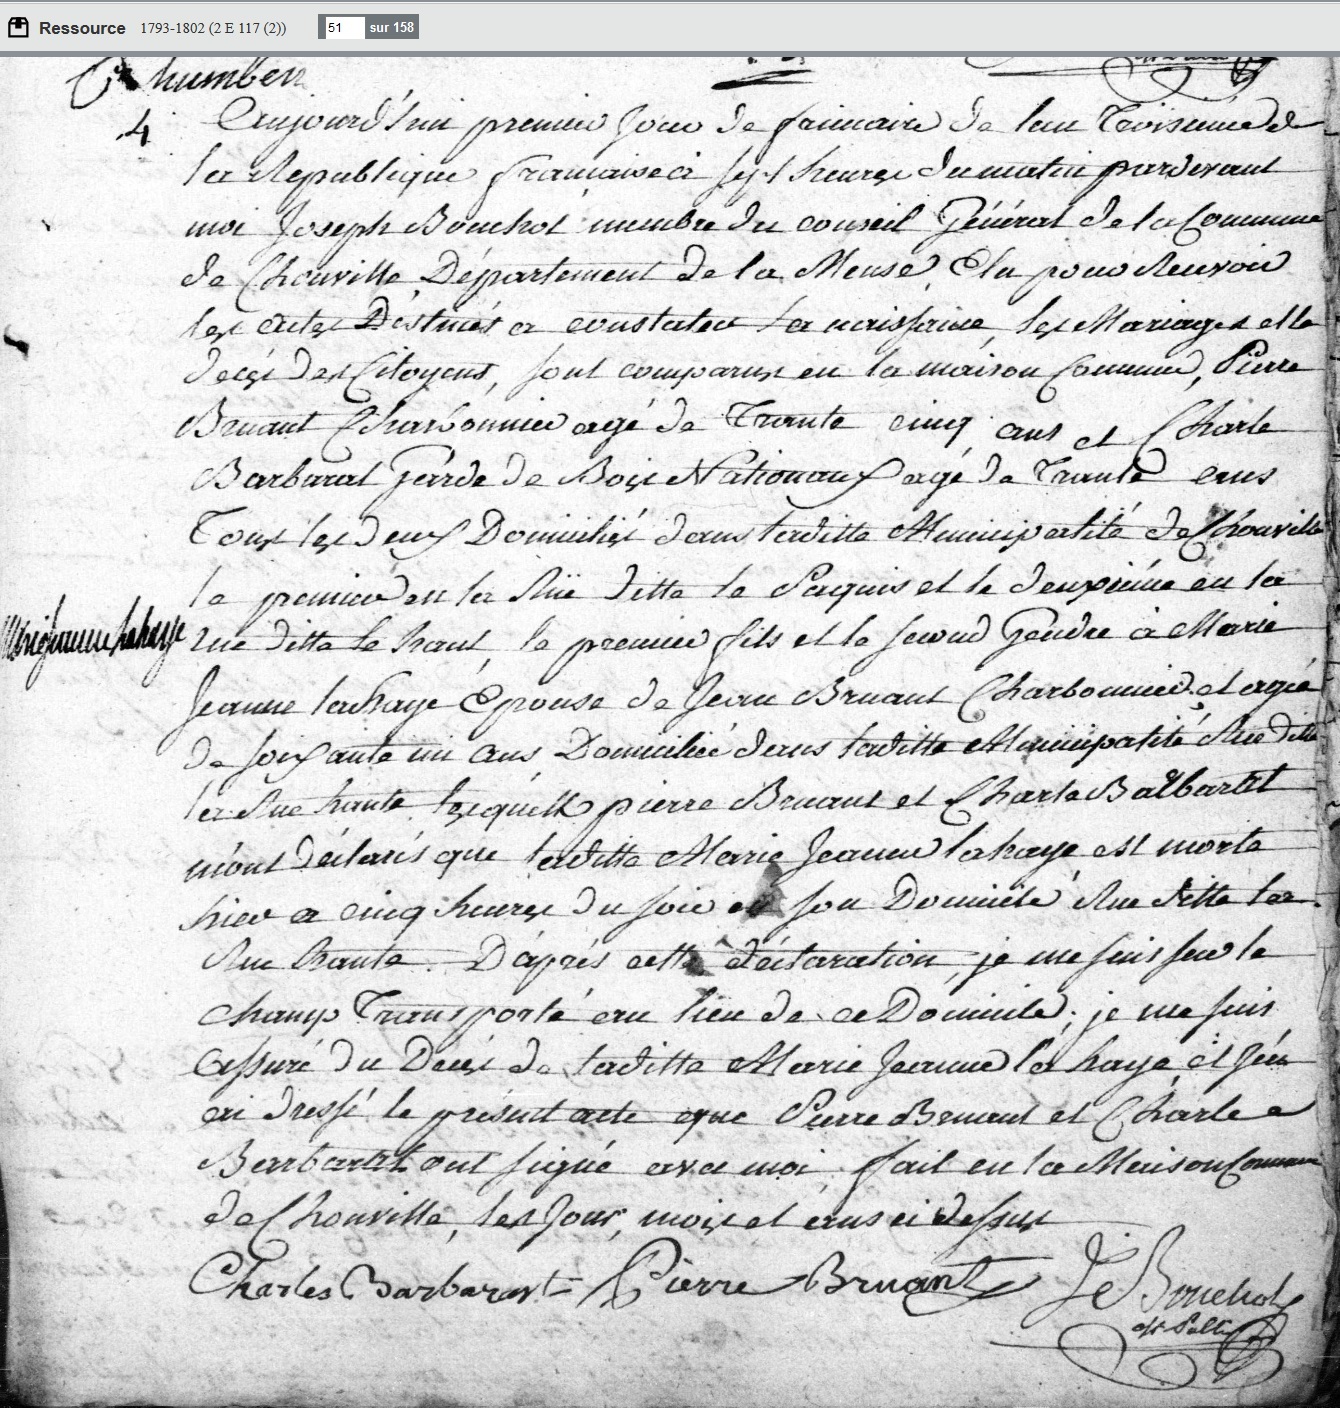 Ressource 1793-1802 (2 E 117 (2)) 51 sur 158
humbert
4
Aujourd'hui premier jour de frimaire de lan Troisième de
la Republique francaise à sept heures du matin pardevant
moi Joseph Bouchot membre du conseil Général de la Commune
de Chonville Département de la Meuse, Elu pour Recevoir
les actes Destinés a constater la naissance, les Mariages et le
décés des Citoyens, sont comparus en la maison Commune, Pierre
Bruant Charbonnier agé de Trante cinq ans et Charle
Barbarat Garde de Bois Nationaux agé de Trante ans
Tous les deux Domiciliés dans laditte Municipalité de Chonville
le premier en la Rüe ditte le Paquis et le deuxième en la
rue ditte le haut, le premier fils et le second Gendre à Marie
Mariejeanne lahaye
Jeanne lahaye Epouse de Jean Bruant Charbonnier et agée
de soixante un ans Domiciliée dans laditte Municipalité Rue ditte
la Rue haute lesquels pierre Bruant et Charle Balbartet
m'ont déclarés que laditte Marie Jeanne lahaye est morte
hier a cinq heures du soir en son Domicile Rue ditte la
Rue haute. D'après cette déclaration, je me suis sur le
champ Transporté au lieu de ce Domicile; je me suis
assuré du Decés de laditte Marie Jeanne la haye et j'en
ai dressé le présent acte que Pierre Bruant et Charle
Barbartet ont signé avec moi fait en la Maison Commune
de Chonville, les Jour, mois et ans ci dessus
Charles Barbarast Pierre Bruant J Bouchot